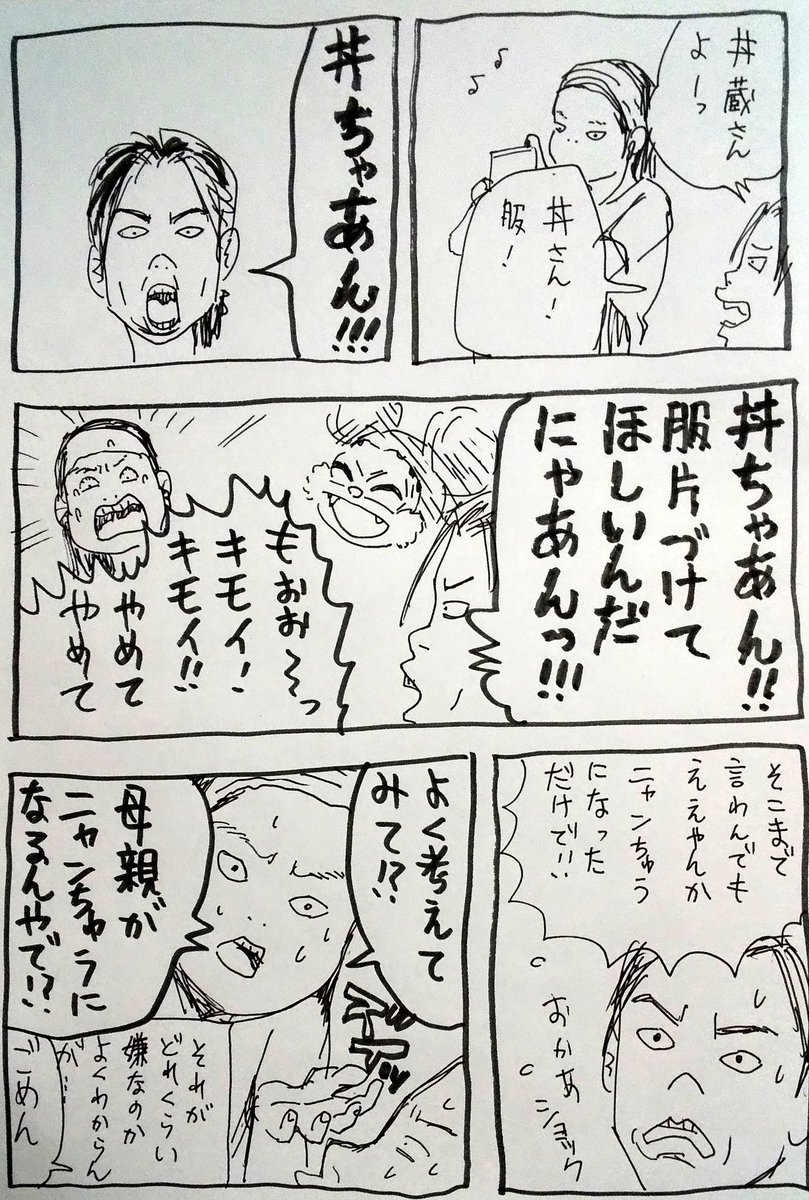 丼蔵さん
よーっ
丼さん!
服!
丼ちゃあん!!!
丼ちゃあん!!
服片づけて
ほしいんだ
にゃあんっ!!!
もおお〜っ
キモイ!
キモイ!!
やめて
やめて
そこまで
言わんでも
ええやんか
ニャンちゅう
になった
だけで!!
おかあ
ショック
よく考えて
みて!?
母親が
ニャンちゅうに
なるんやで!?
それが
どれくらい
嫌なのか
よくわからん
が…
ごめん